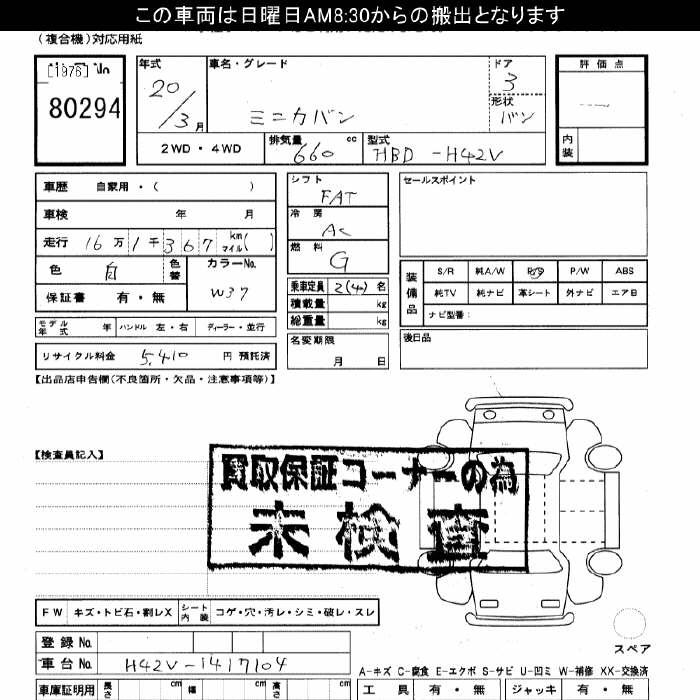 この車両は日曜日AM8:30からの搬出となります
(複合機)対応用紙
[1976]
80294
年式
20/3月
車名・グレード
ミニカバン
ドア
3
形状
バン
評価点
内装
2WD・4WD
排気量
660 cc
型式
HBD-H42V
車歴 自家用・( )
車検 年 月
走行 16万1千367 km マイル( )
色 白 色替
カラーNo.
W37
保証書 有・無
モデル年式 年 ハンドル 左・右 ディーラー・並行
リサイクル料金 5,410 円 預託済
シフト
FAT
冷房
AC
燃料
G
乗車定員 2(4)名
積載量 kg
総重量 kg
名変期限
月 日
セールスポイント
装備品
S/R 純A/W P/S P/W ABS
純TV 純ナビ 革シート 外ナビ エアB
ナビ型番:
後日品
【出品店申告欄(不良箇所・欠品・注意事項等)】
【検査員記入】
買取保証コーナーの為
未検査
FW キズ・トビ石・割レX シート内装 コゲ・穴・汚レ・シミ・破レ・スレ
スペア
登録No.
車台No. H42V-1417104
A-キズ C-腐食 E-エクボ S-サビ U-凹ミ W-補修 XX-交換済
車庫証明用 長さ cm 幅 cm 高さ cm
工具 有・無 ジャッキ 有・無